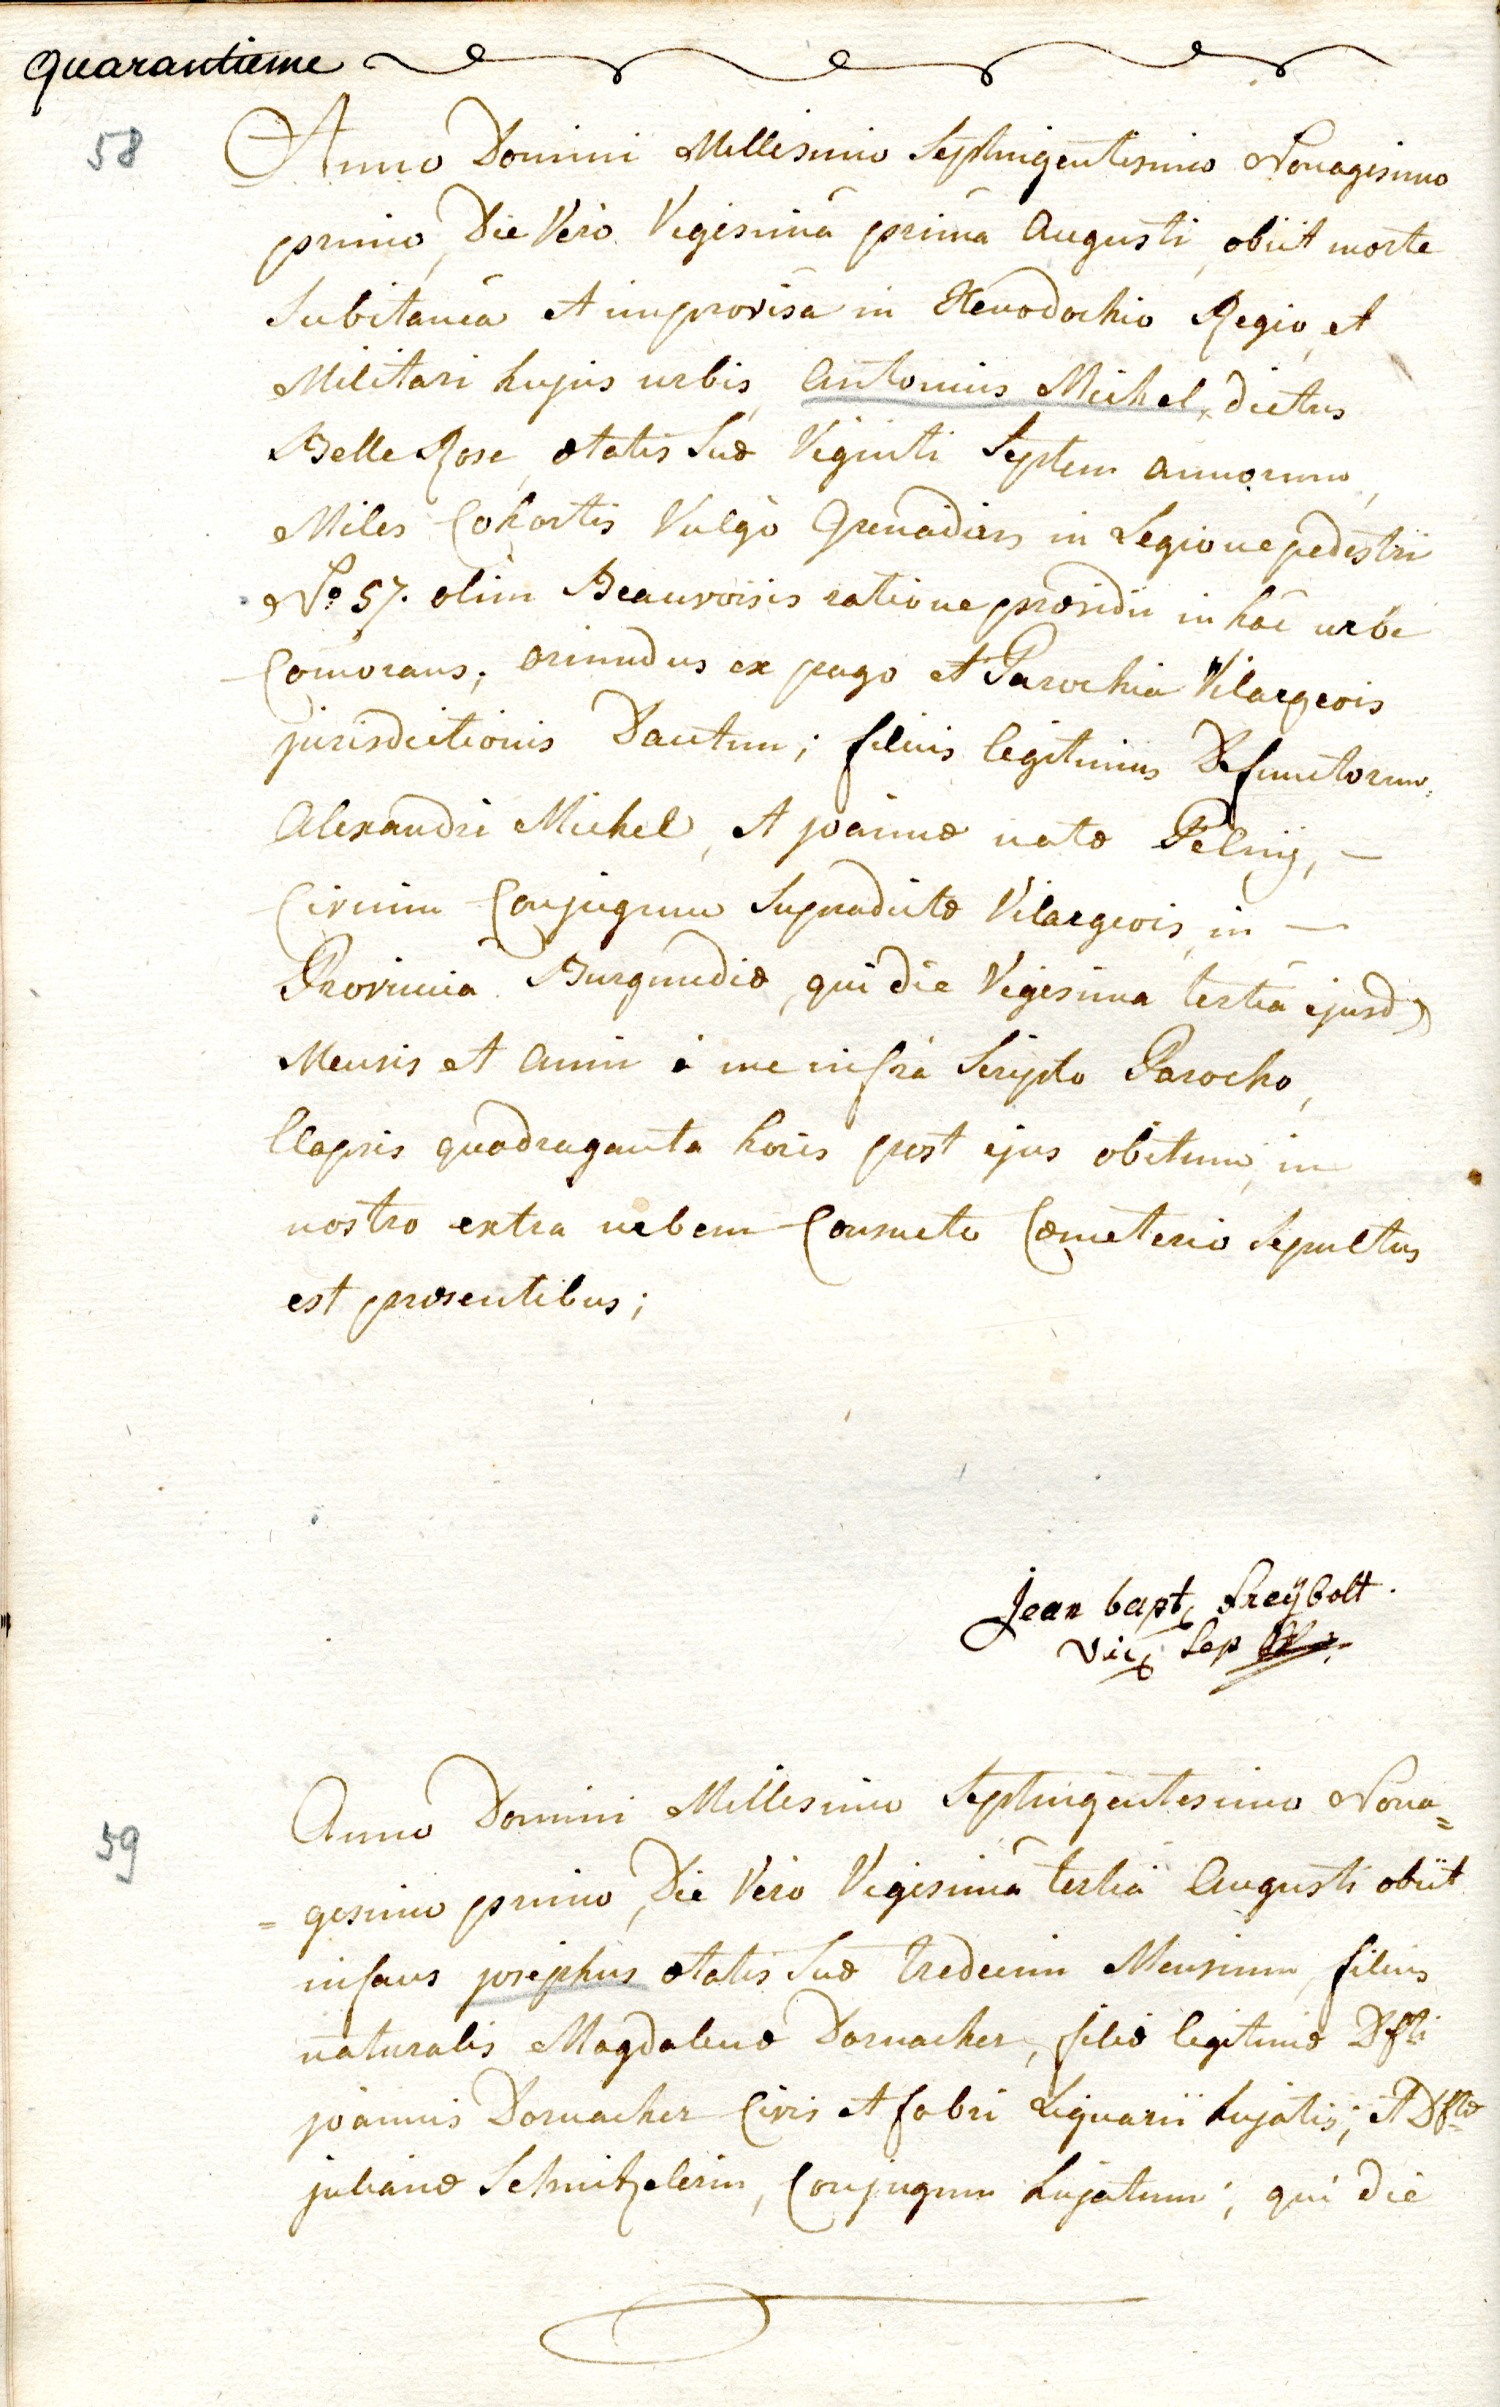 Quarantieme
58 Anno Domini Millesimo Septingentesimo Nonagesimo
primo, Die Verò Vigesimâ primâ Augusti, obiit morte
Subitaneâ et improvisâ in Xenodochio Regio, et
Militari hujus urbis, Antonius Michel, dictus
Belle Rose, ætatis Suæ Viginti Septem annorum,
Miles Cohortis Vulgò Grenadiers in Legione pedestri
No. 57. olim Beauvoisis ratione præsidii in hâc urbe
Comorans; oriundus ex pago et Parochia Vilargeois
jurisdictionis Dautun; filius legitimus Defunctorum
Alexandri Michel, et joannæ natæ Pelnij, —
Civium Conjugum Supradictæ Vilargeois, in —
Provinciâ Burgundiæ, qui die Vigesima tertiâ ejusd
Mensis et anni à me infrà Scripto Parocho,
Elapsis quadraganta horis post ejus obitum, in
nostro extra urbem Consueto Cœmeterio Sepultus
est præsentibus;
Jean bapt, Freÿbolt.
Vic, Sep
59 Anno Domini Millesimo Septingentesimo Nona=
=gesimo primo, Die Vero Vigesimâ tertiâ Augusti obiit
infans josephus ætatis Suæ tredecim Mensium, filius
naturalis Magdalenæ Dornacher, filiæ legitimæ Dfti
joannis Dornacher Civis et fabri Lignarii hujatis; et Dftæ
julianæ Schnitzlerin, Conjugum hujatum; qui die